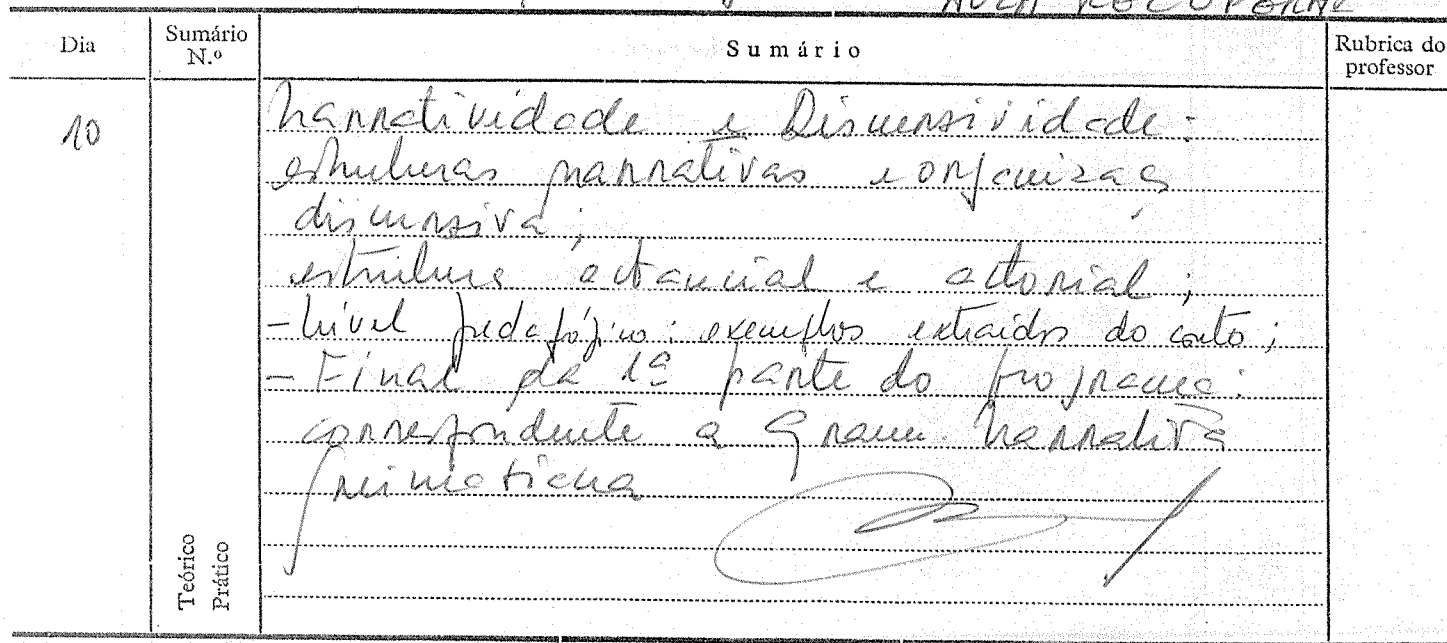 AULA
Dia
Sumário N.º
Sumário
Rubrica do professor
10
Narratividade e Discursividade:
estruturas narrativas e organização
discursiva;
estrutura actancial e actorial;
- Nível pedagógico: exemplos extraídos do conto;
- Final da 1ª parte do programa:
correspondente a Gram. Narrativa
greimasiana
Teórico
Prático